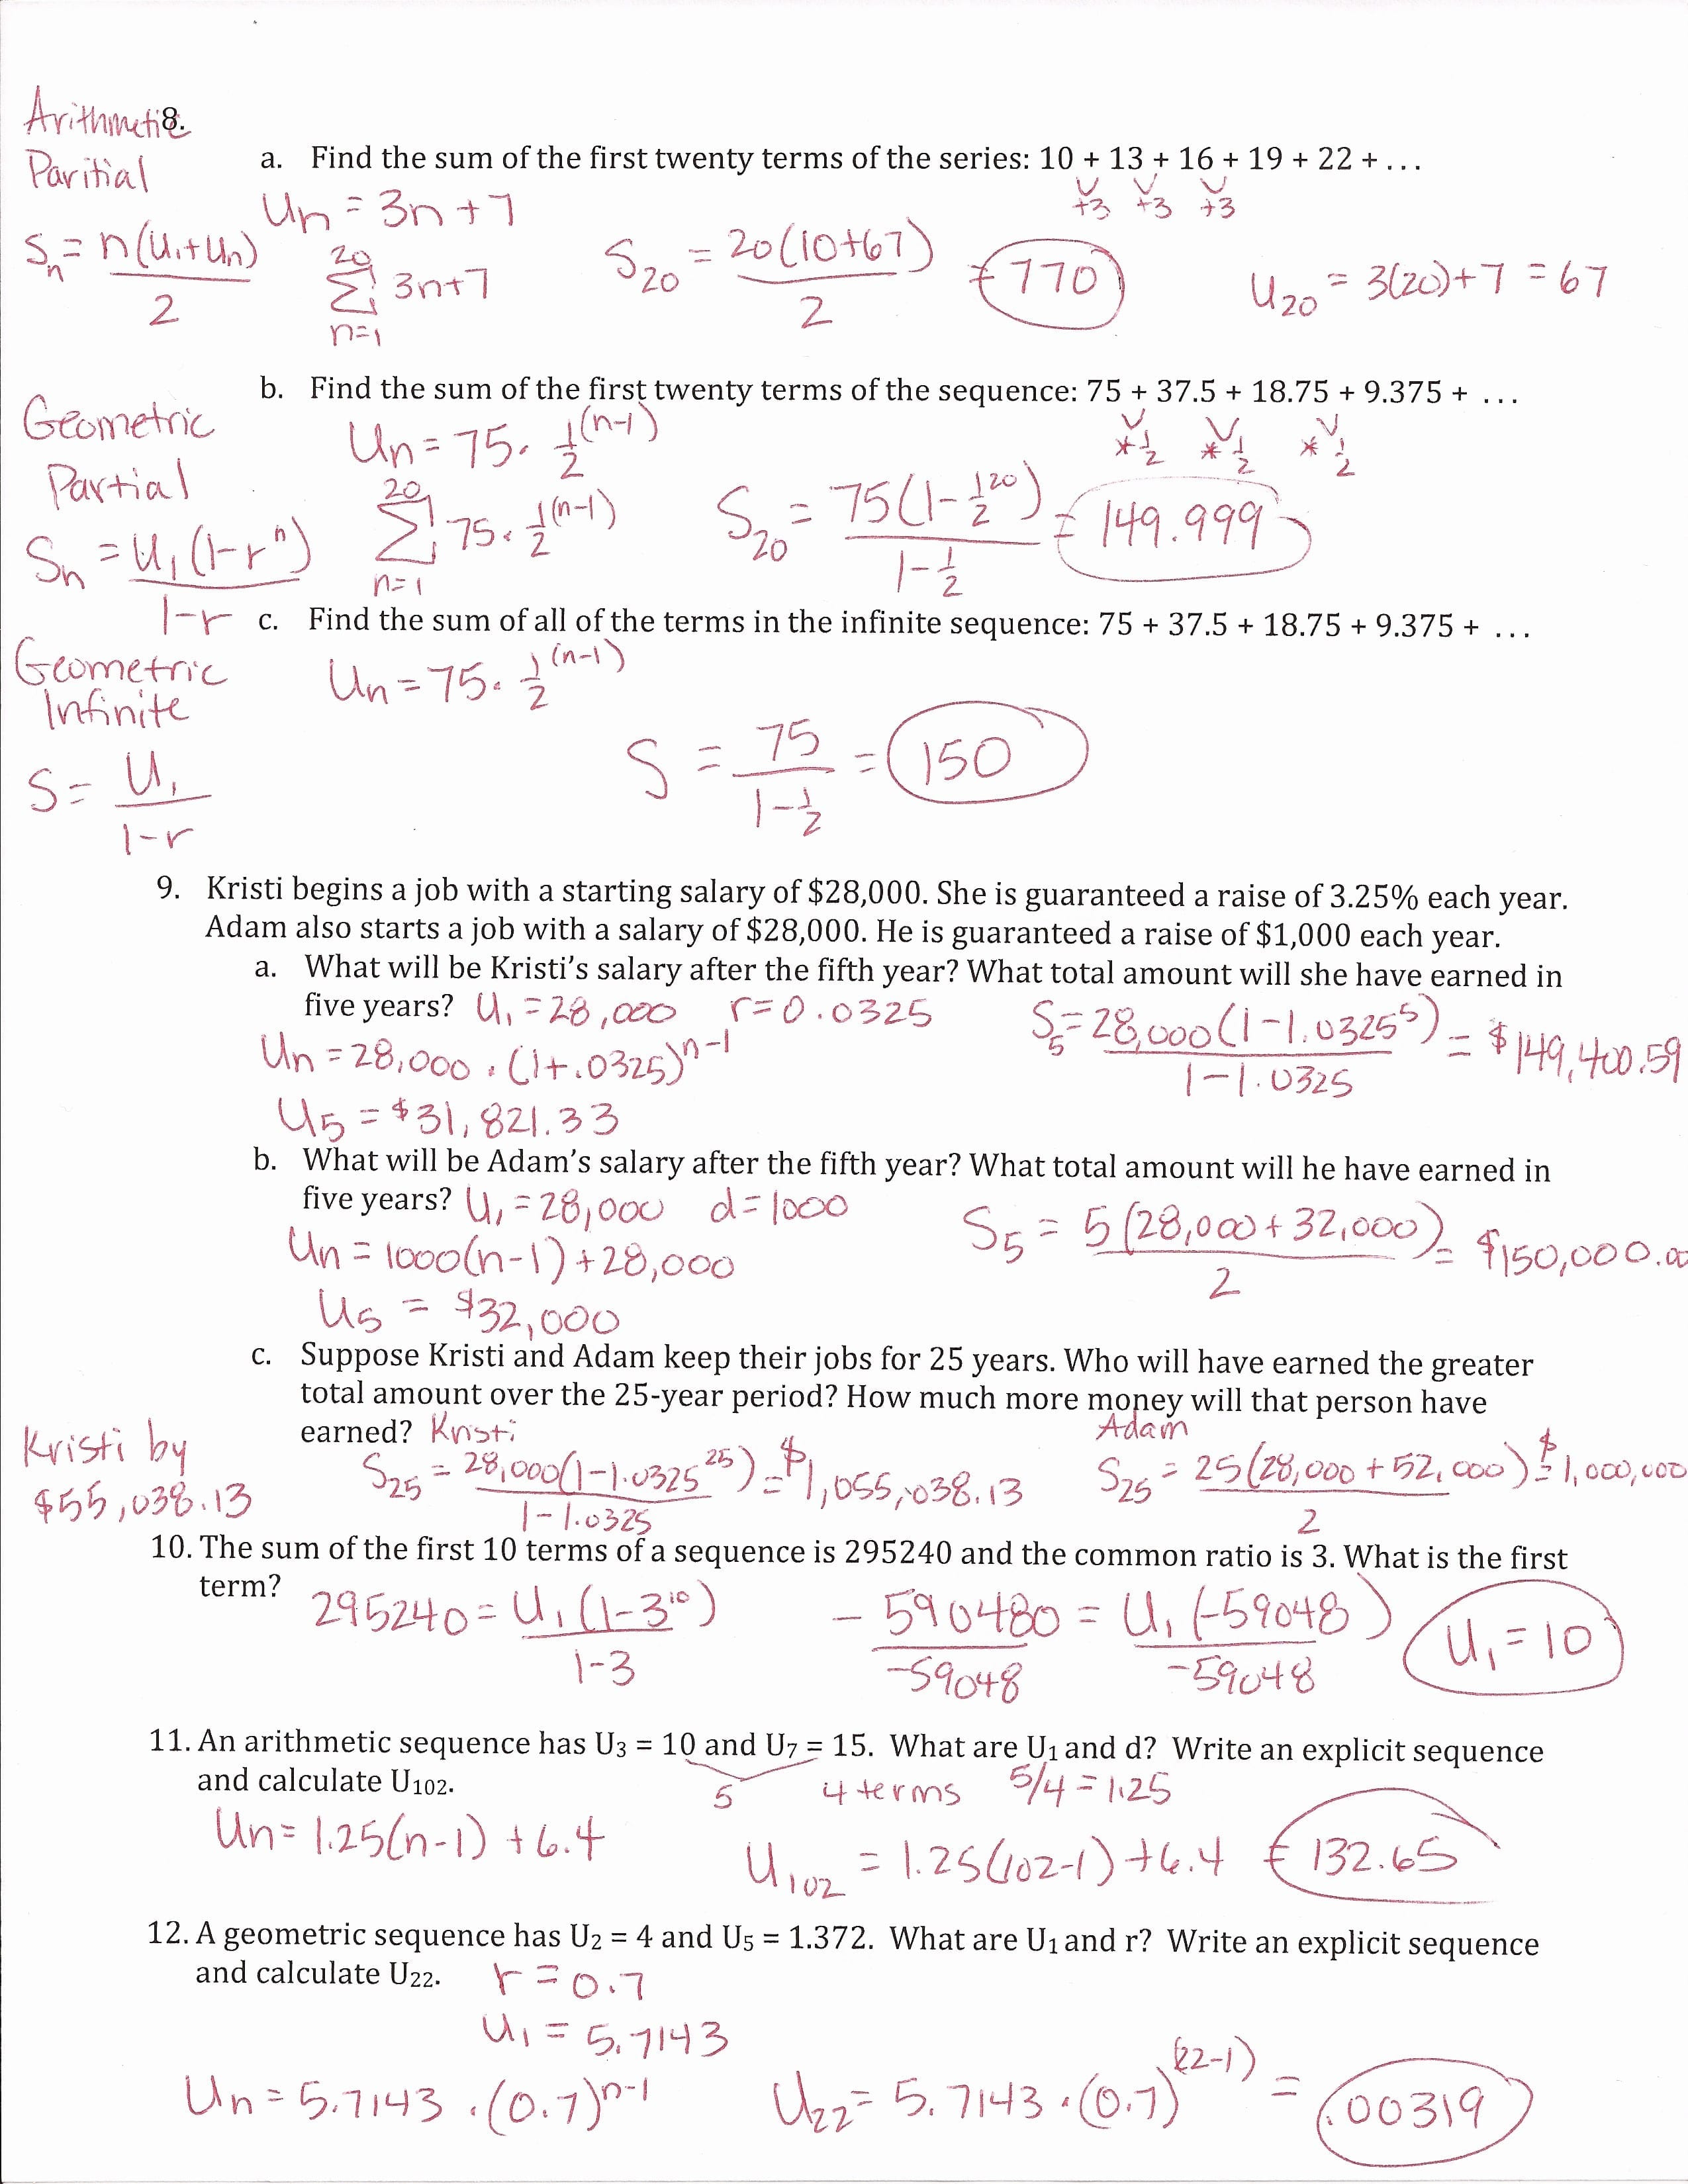 Arithmetic 8.
Paritial
a. Find the sum of the first twenty terms of the series: 10 + 13 + 16 + 19 + 22 + ...
+3 +3 +3
Un = 3n+7
Sn = n(U1+Un) / 2
20 Σ n=1 3n+7
S20 = 20(10+67) / 2 = 770
U20 = 3(20)+7 = 67
b. Find the sum of the first twenty terms of the sequence: 75 + 37.5 + 18.75 + 9.375 + ...
*1/2 *1/2 *1/2
Geometric
Partial
Un = 75 · 1/2^(n-1)
Sn = U1(1-r^n) / 1-r
20 Σ n=1 75 · 1/2^(n-1)
S20 = 75(1-1/2^20) / 1-1/2 = 149.999
c. Find the sum of all of the terms in the infinite sequence: 75 + 37.5 + 18.75 + 9.375 + ...
Geometric
Infinite
Un = 75 · 1/2^(n-1)
S = U1 / 1-r
S = 75 / 1-1/2 = 150
9. Kristi begins a job with a starting salary of $28,000. She is guaranteed a raise of 3.25% each year.
Adam also starts a job with a salary of $28,000. He is guaranteed a raise of $1,000 each year.
a. What will be Kristi's salary after the fifth year? What total amount will she have earned in
five years? U1 = 28,000 r = 0.0325
S5 = 28,000(1-1.0325^5) / 1-1.0325 = $149,400.59
Un = 28,000 · (1+.0325)^n-1
U5 = $31,821.33
b. What will be Adam's salary after the fifth year? What total amount will he have earned in
five years? U1 = 28,000 d = 1000
S5 = 5(28,000+32,000) / 2 = $150,000.00
Un = 1000(n-1)+28,000
U5 = $32,000
c. Suppose Kristi and Adam keep their jobs for 25 years. Who will have earned the greater
total amount over the 25-year period? How much more money will that person have
earned? Kristi Adam
Kristi by
$55,038.13
S25 = 28,000(1-1.0325^25) / 1-1.0325 = $1,055,038.13
S25 = 25(28,000+52,000) / 2 = $1,000,000
10. The sum of the first 10 terms of a sequence is 295240 and the common ratio is 3. What is the first
term?
295240 = U1(1-3^10) / 1-3
-590480 / -59048 = U1(-59048) / -59048
U1 = 10
11. An arithmetic sequence has U3 = 10 and U7 = 15. What are U1 and d? Write an explicit sequence
and calculate U102.
5 4 terms 5/4 = 1.25
Un = 1.25(n-1) + 6.4
U102 = 1.25(102-1)+6.4 = 132.65
12. A geometric sequence has U2 = 4 and U5 = 1.372. What are U1 and r? Write an explicit sequence
and calculate U22. r = 0.7
U1 = 5.7143
Un = 5.7143 · (0.7)^n-1
U22 = 5.7143 · (0.7)^(22-1) = .00319